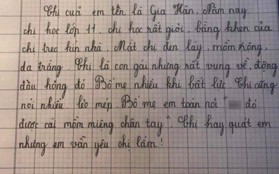 Chị cuả em tên là Gia Hân. Năm nay
chị học lớp 11, chị học rất giỏi, bằng khen của
chị treo kín nhà. Mắt chị đen láy, mồm rộng,
da trắng. Chị là con gái nhưng rất vụng về, động
đâu hỏng đó. Bố mẹ nhiều khi bất lực. Chị cũng
nói nhiều lẻo mép. Bố mẹ em toàn nói " đồ
được cái mồm miệng chân tay". Chị hay quát em
nhưng em vẫn yêu chị lắm!